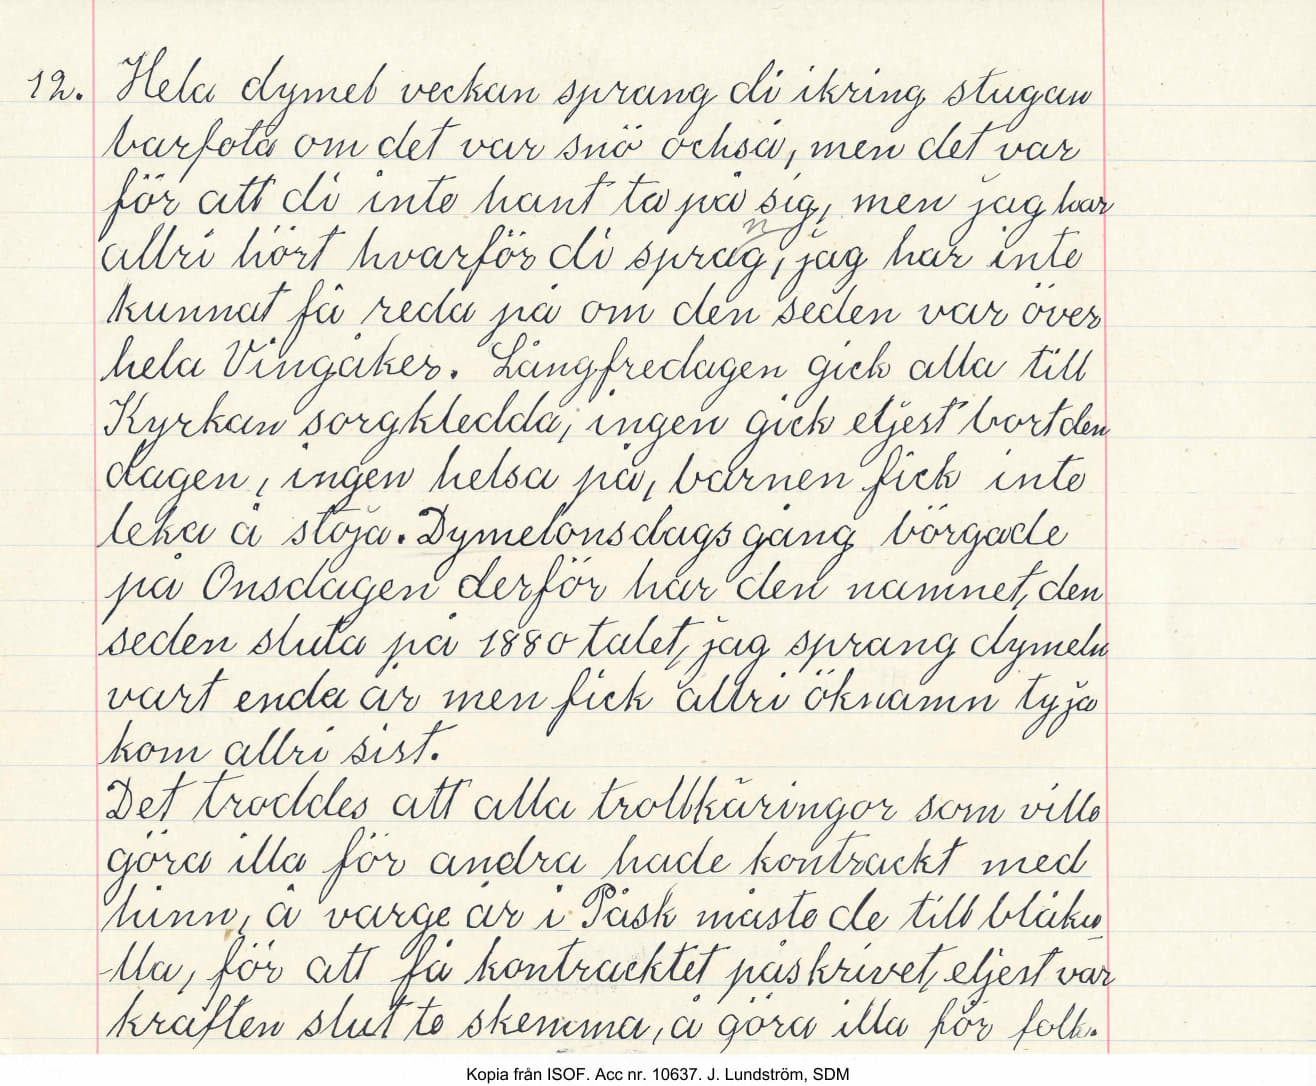 12. Hela dymel veckan sprang di ikring stugan
barfota om det var snö också, men det var
för att di inte hant ta på sig, men jag har
allri hört hvarför di sprang, jag har inte
kunnat få reda på om den seden var över
hela Vingåker. Långfredagen gick alla till
Kyrkan sorgkledda, ingen gick eljest bort den
dagen, ingen helsa på, barnen fick inte
leka å stoja. Dymelonsdagsgång börgade
på Onsdagen derför har den namnet, den
seden sluta på 1880 talet, jag sprang dymeln
vart enda år men fick allri öknamn ty ja
kom allri sist.
Det troddes att alla trollkäringor som ville
göra illa för andra hade kontrackt med
hinn, å varge år i Påsk måste de till blåku
-lla, för att få kontracktet påskrivet, eljest var
kraften slut te skemma, å göra illa för folk.
Kopia från ISOF. Acc nr. 10637. J. Lundström, SDM